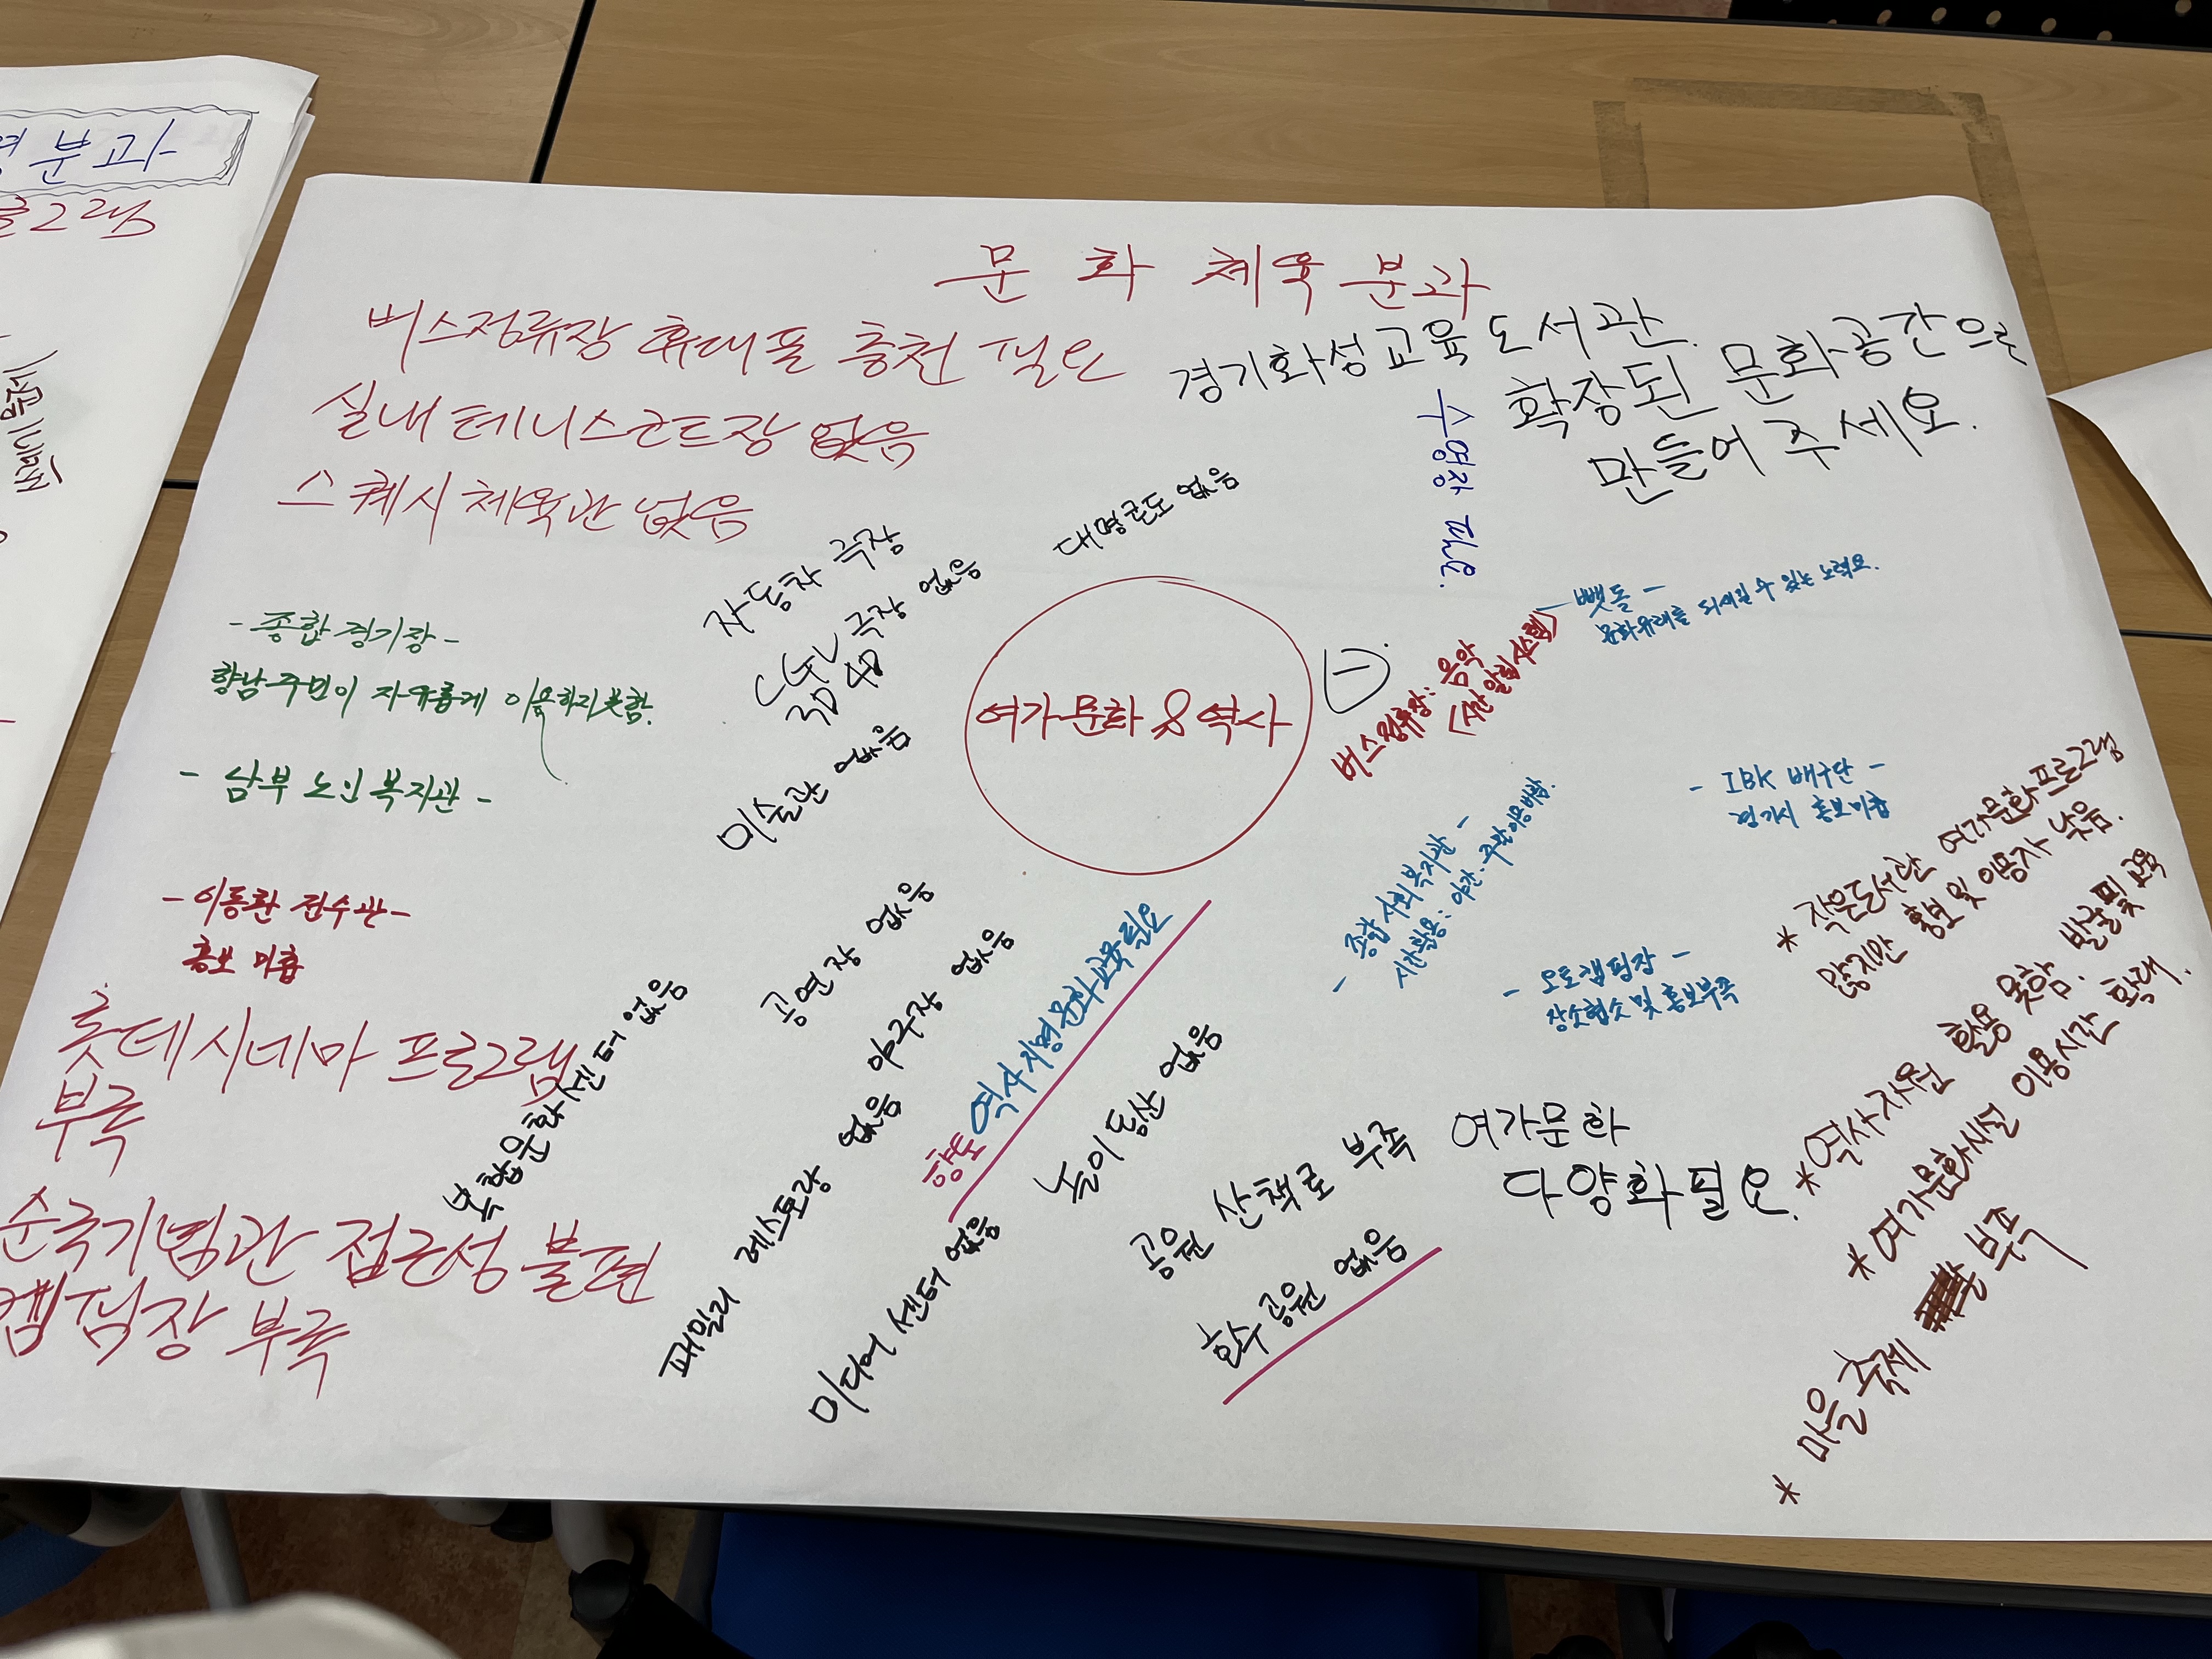 분과
문화체육분과
버스정류장 휴대폰 충천 필요
실내 테니스코트장 없음
스퀘시 체육관 없음
경기화성교육도서관.
확장된 문화공간으로
만들어 주세요.
수영장 필요.
대형군도 없음
자동차 극장
극장 없음
3D 4D
미술관 없음
여가문화 & 역사
버스정류장: 음악
- 뺏돌 -
문화유래를 되새길 수 있는 노력요.
- 종합경기장 -
향남주민이 자유롭게 이용하지 못함.
- 남부 노인복지관 -
- 이동환 전수관 -
홍보 미흡
롯데시네마 프로그램
부족
순국기념관 접근성 불편
캠핑장 부족
복합문화센터 없음
공연장 없음
야구장 없음
패밀리 레스토랑 없음
향토역사지명문화교육필요
미디어 센터 없음
놀이동산 없음
공원 산책로 부족
호수공원 없음
- 종합사회복지관 -
시간활용: 야간·주말이용미흡.
- IBK 배구단 -
경기시 홍보미흡
- 오토캠핑장 -
장소협소 및 홍보부족
여가문화
다양화필요.
* 작은도서관 여가문화프로그램
많지만 홍보 및 이용자 낮음.
* 역사자원 활용 못함. 발굴 및 교육
* 여가문화시설 이용시간 확대.
* 마을 축제 부족